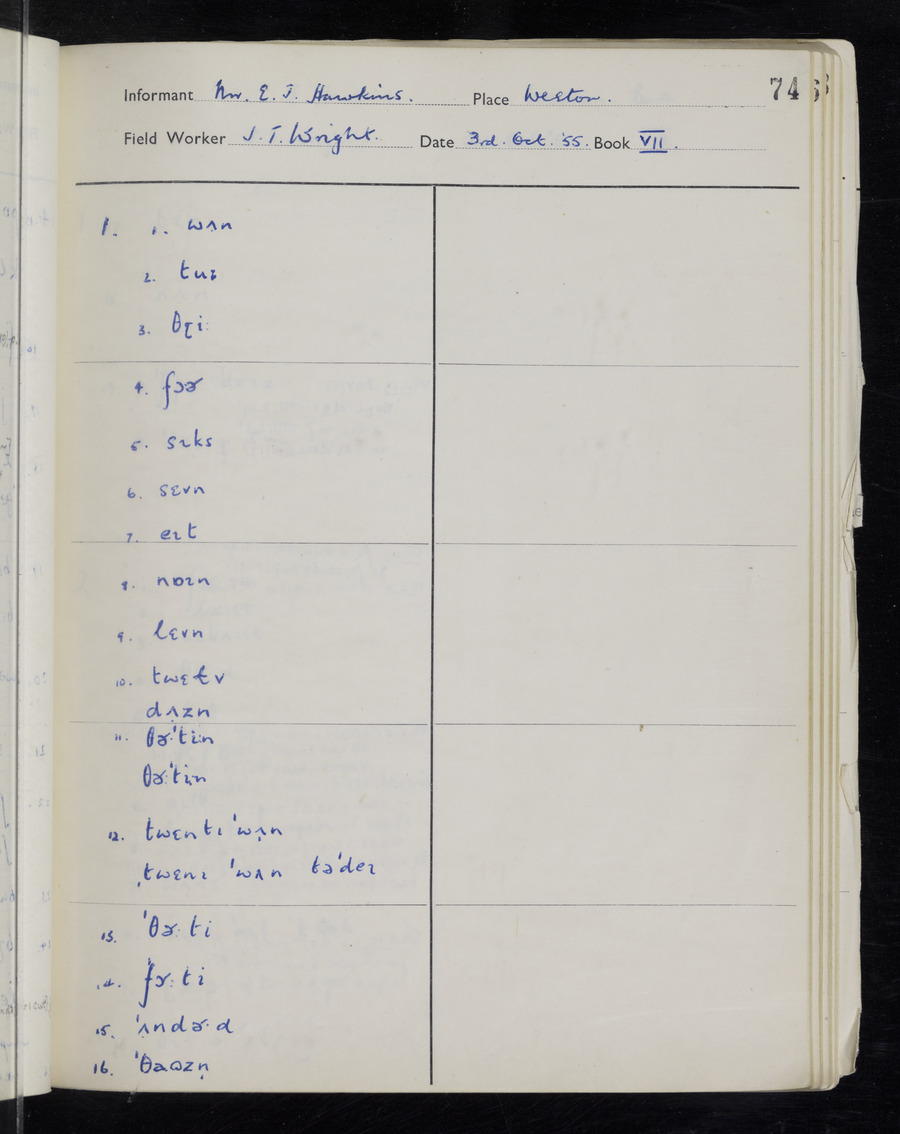 Informant Mr. E. J. Hawkins. Place Weston. 746
Field Worker J. T. Wright. Date 3rd. Oct. '55. Book VII.
1. 1. wʌn
2. tuː
3. θɽiː
4. fɔɚ
5. sɪks
6. sɛvn
7. eɪt
8. nɒɪn
9. lɛvn
10. twɛɫv
dʌ̣zn
11. θɚː'tiːn
θɚː'tiːn
12. twɛntɪ 'wʌ̣n
ˌtwɛnɪ 'wʌn tə'deɪ
13. 'θɚːti
14. 'fɚːti
15. 'ʌ̣ndɚ·d
16. 'θaʊzn̩